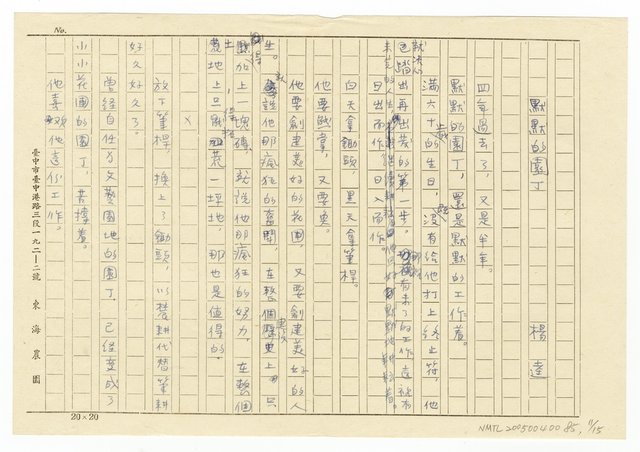 No.
默默的園丁
楊逵
四年過去了，又是半年。
默默的園丁，還是默默的工作着。
滿六十歲的生日，沒有給他打上終止符，他
已踏出再出發的第一步。
日出而作，日入而作。
白天拿鋤頭，黑天拿筆桿。
他要熱賞，又要吏。
他要創建美好的花園，又要創建美好的人
生。說他那瘋狂的奮鬥，在整個歷史上只
加上一塊磚，就說他那瘋狂的努力，在整個
荒地上只墾一坪地，那也是值得的。
×
放下筆桿，換上了鋤頭，以墾耕代替筆耕
好久好久了。
曾經自任為文藝園地的園丁，已經變成了
小小花園的園丁，苦撐着。
他喜歡他這份工作。
臺中市臺中港路三段一九二—二號 東海農園
20×20
NMTL 20050040085, 9/15